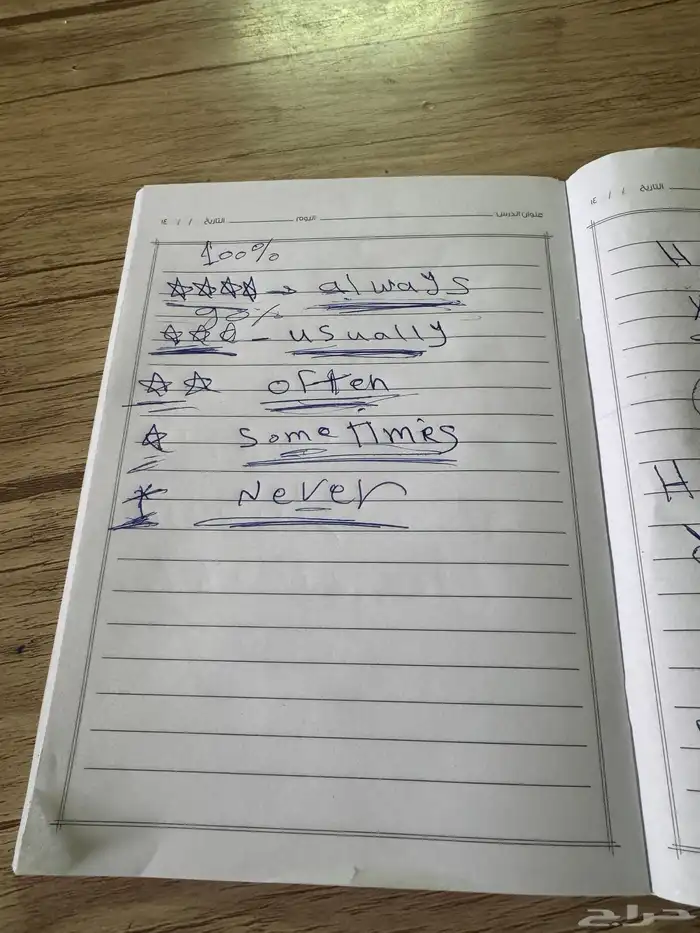 عنوان الدرس: اليوم التاريخ / / ١٤
التاريخ / / ١٤
100%
☆☆☆☆ → always
90%
☆☆☆ - usually
☆☆ often
☆ sometimes
Never
H
H
حراج